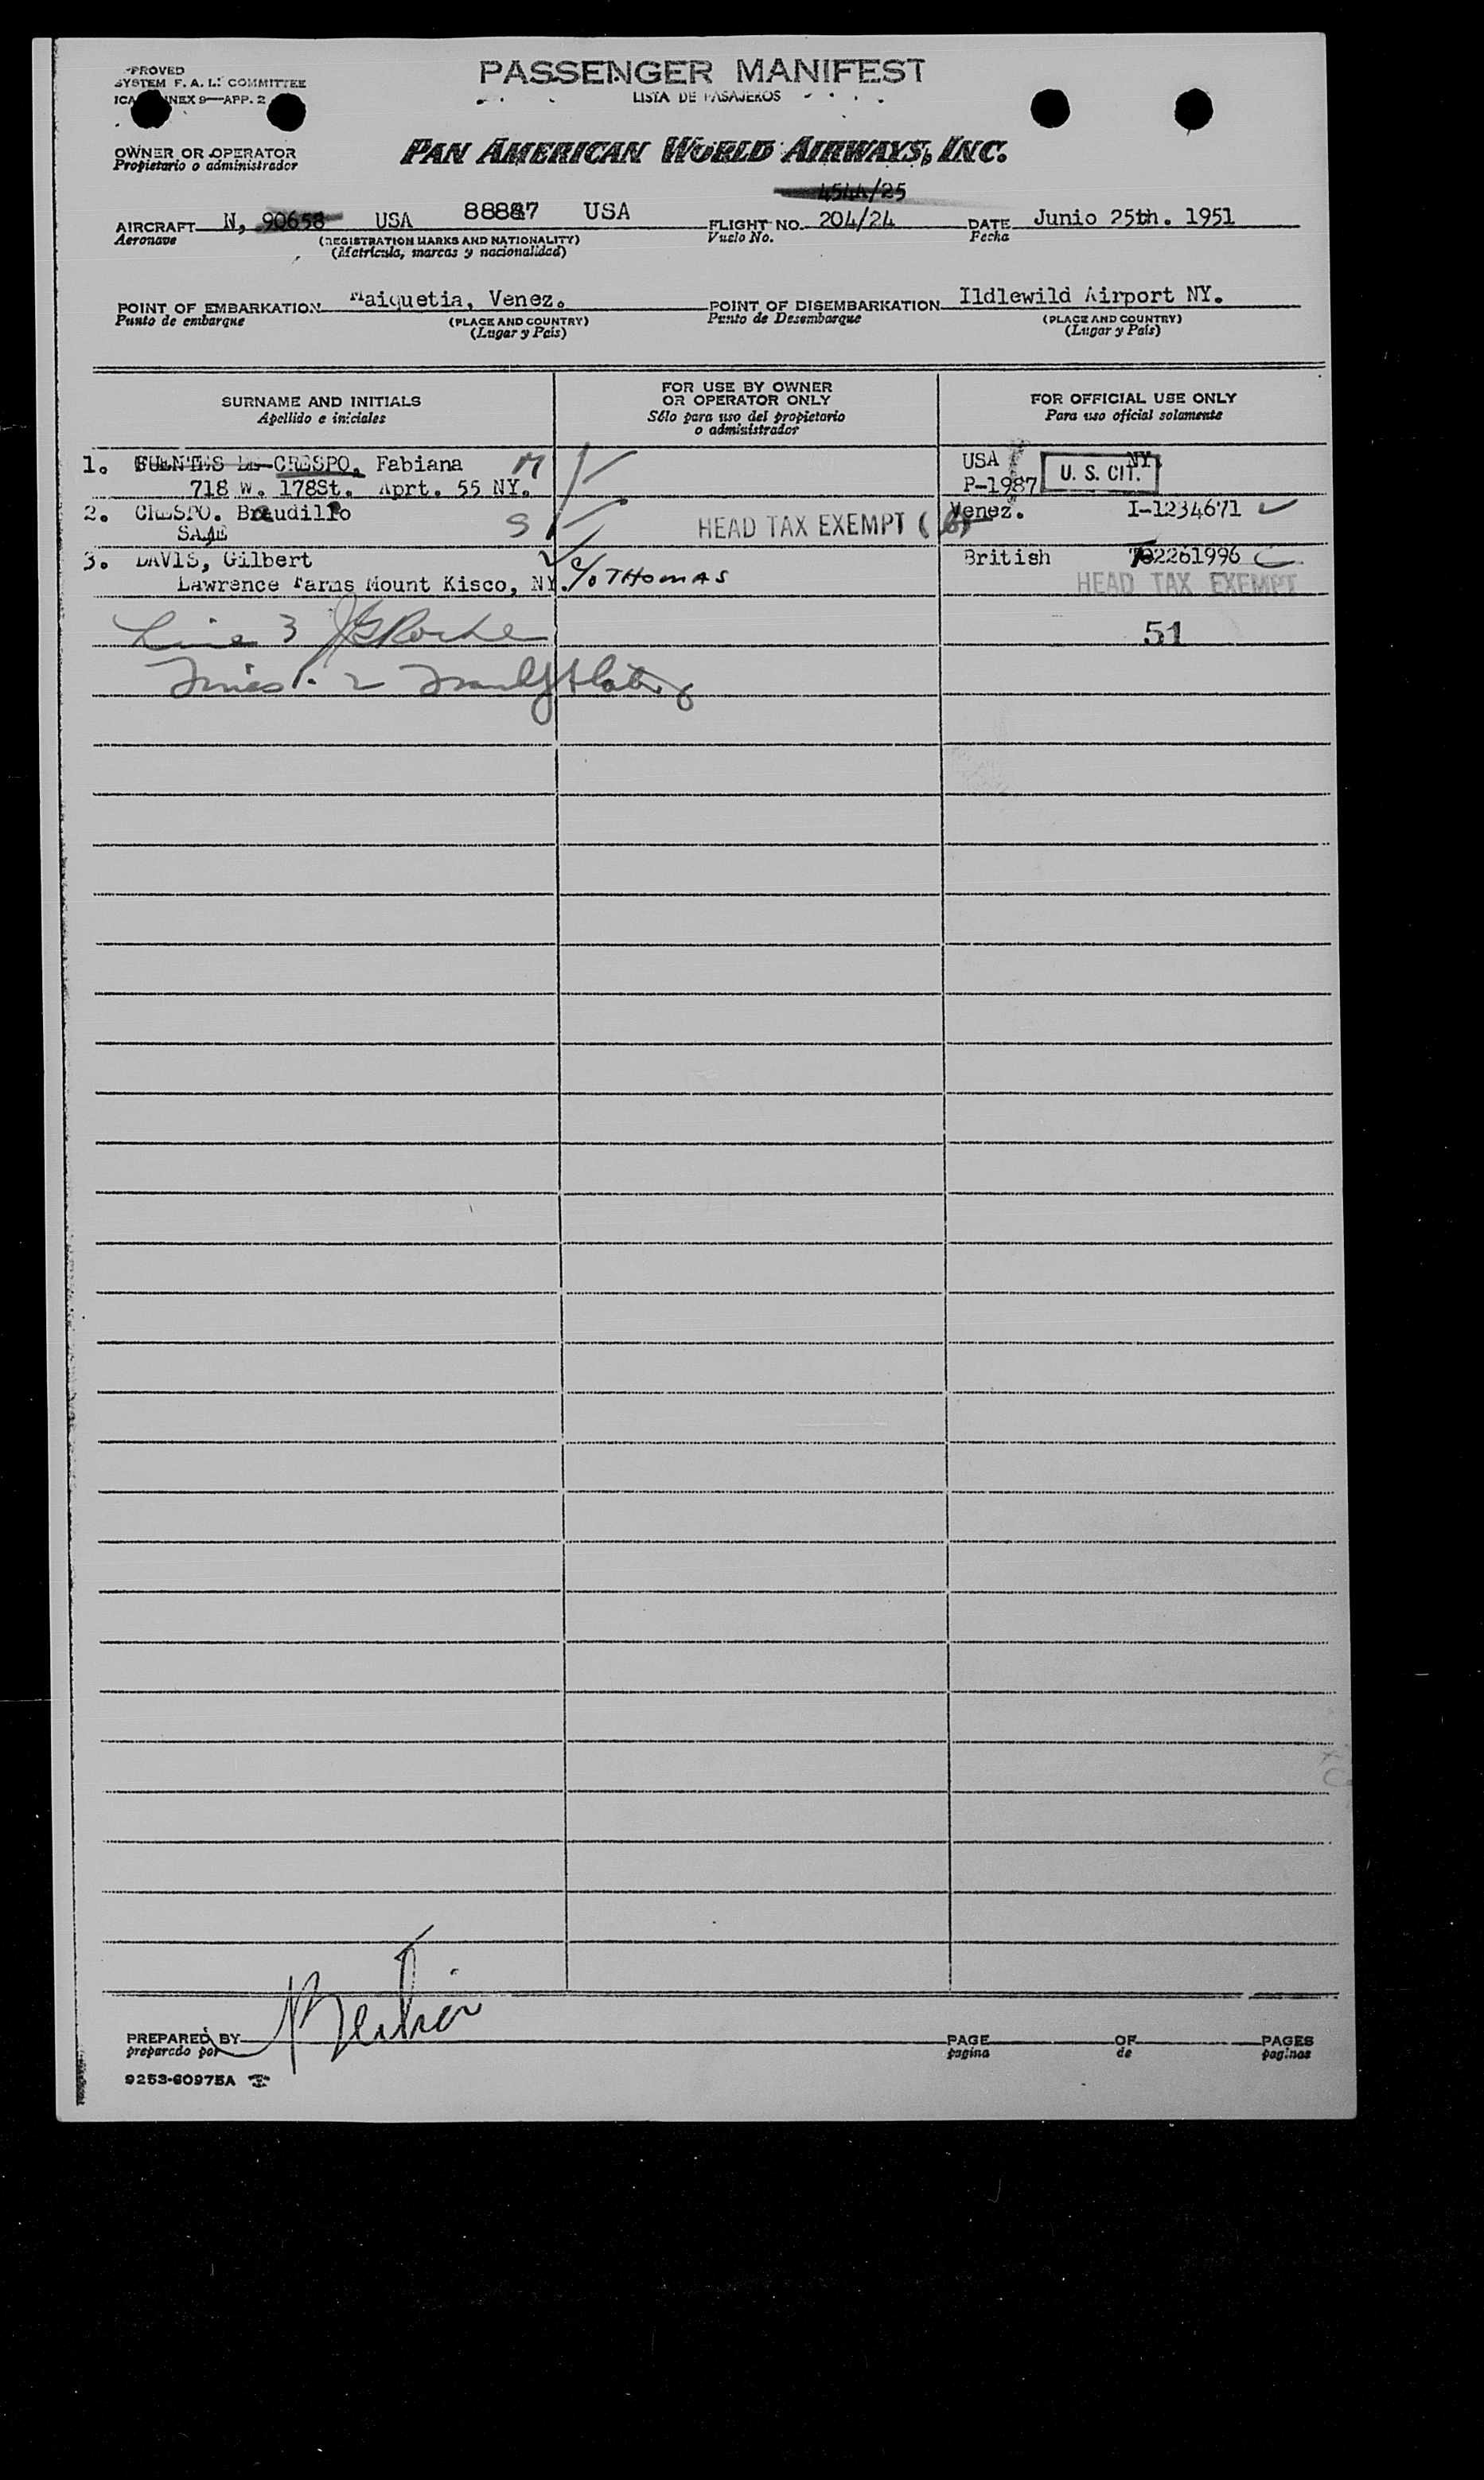 PROVED
SYSTEM F. A. L. COMMITTEE
NEX 9—APP. 2
PASSENGER MANIFEST
LISTA DE PASAJEROS
OWNER OR OPERATOR
Propietario o administrador
PAN AMERICAN WORLD AIRWAYS, INC.
454A/25
AIRCRAFT N, 90658 USA 88887 USA FLIGHT NO. 204/24 DATE Junio 25th. 1951
Aeronave (REGISTRATION MARKS AND NATIONALITY) Vuelo No. Fecha
(Matrícula, marcas y nacionalidad)
POINT OF EMBARKATION Maiquetia, Venez. POINT OF DISEMBARKATION Ildlewild Airport NY.
Punto de embarque (PLACE AND COUNTRY) Punto de Desembarque (PLACE AND COUNTRY)
(Lugar y País) (Lugar y País)
SURNAME AND INITIALS
Apellido e iniciales
FOR USE BY OWNER
OR OPERATOR ONLY
Sólo para uso del propietario
o administrador
FOR OFFICIAL USE ONLY
Para uso oficial solamente
1. FUENTES DE CRESPO, Fabiana M USA NY.
718 W. 178St. Aprt. 55 NY. P-1987 U. S. CIT.
2. CRESPO. Braudilio Venez. I-1234671
SAME S HEAD TAX EXEMPT
3. DAVIS, Gilbert British 2261996
Lawrence Farms Mount Kisco, NY. c/o THOMAS HEAD TAX EXEMPT
Line 3 51
Lines 1. 2
PREPARED BY PAGE OF PAGES
preparado por pagina de paginas
9253-60975A